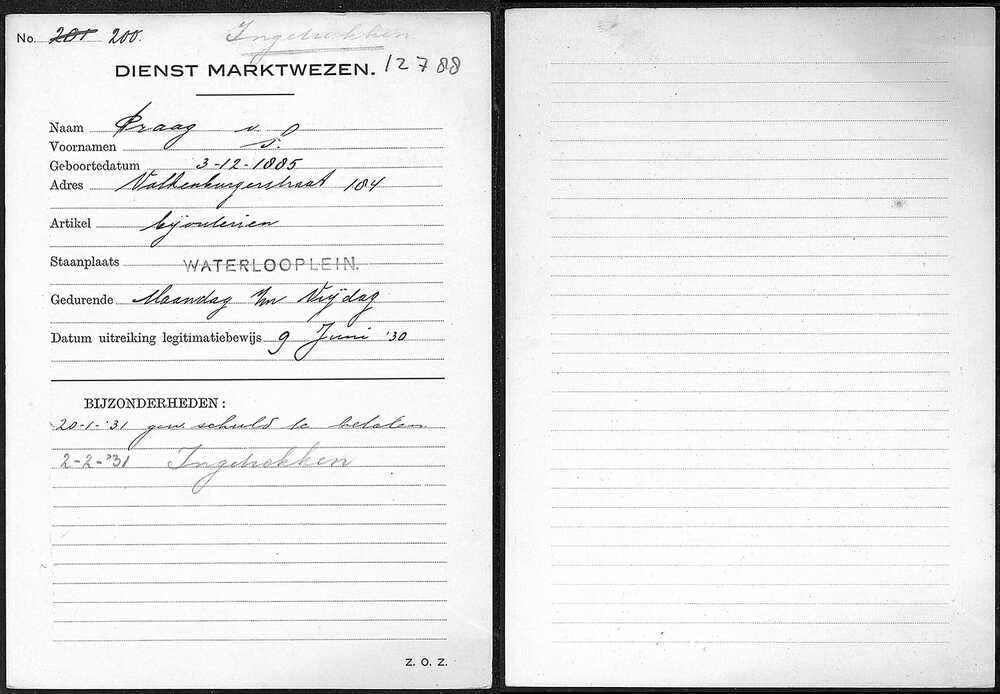 No. 201 200. Ingetrokken
DIENST MARKTWEZEN. 12788
Naam Praag v.
Voornamen S.
Geboortedatum 3-12-1885
Adres Valkenburgerstraat 184
Artikel bijouterien
Staanplaats WATERLOOPLEIN.
Gedurende Maandag t/m Vrijdag
Datum uitreiking legitimatiebewijs 9 Juni '30
BIJZONDERHEDEN:
20-1-'31 gew. schuld te betalen
2-2-'31 Ingetrokken
Z. O. Z.